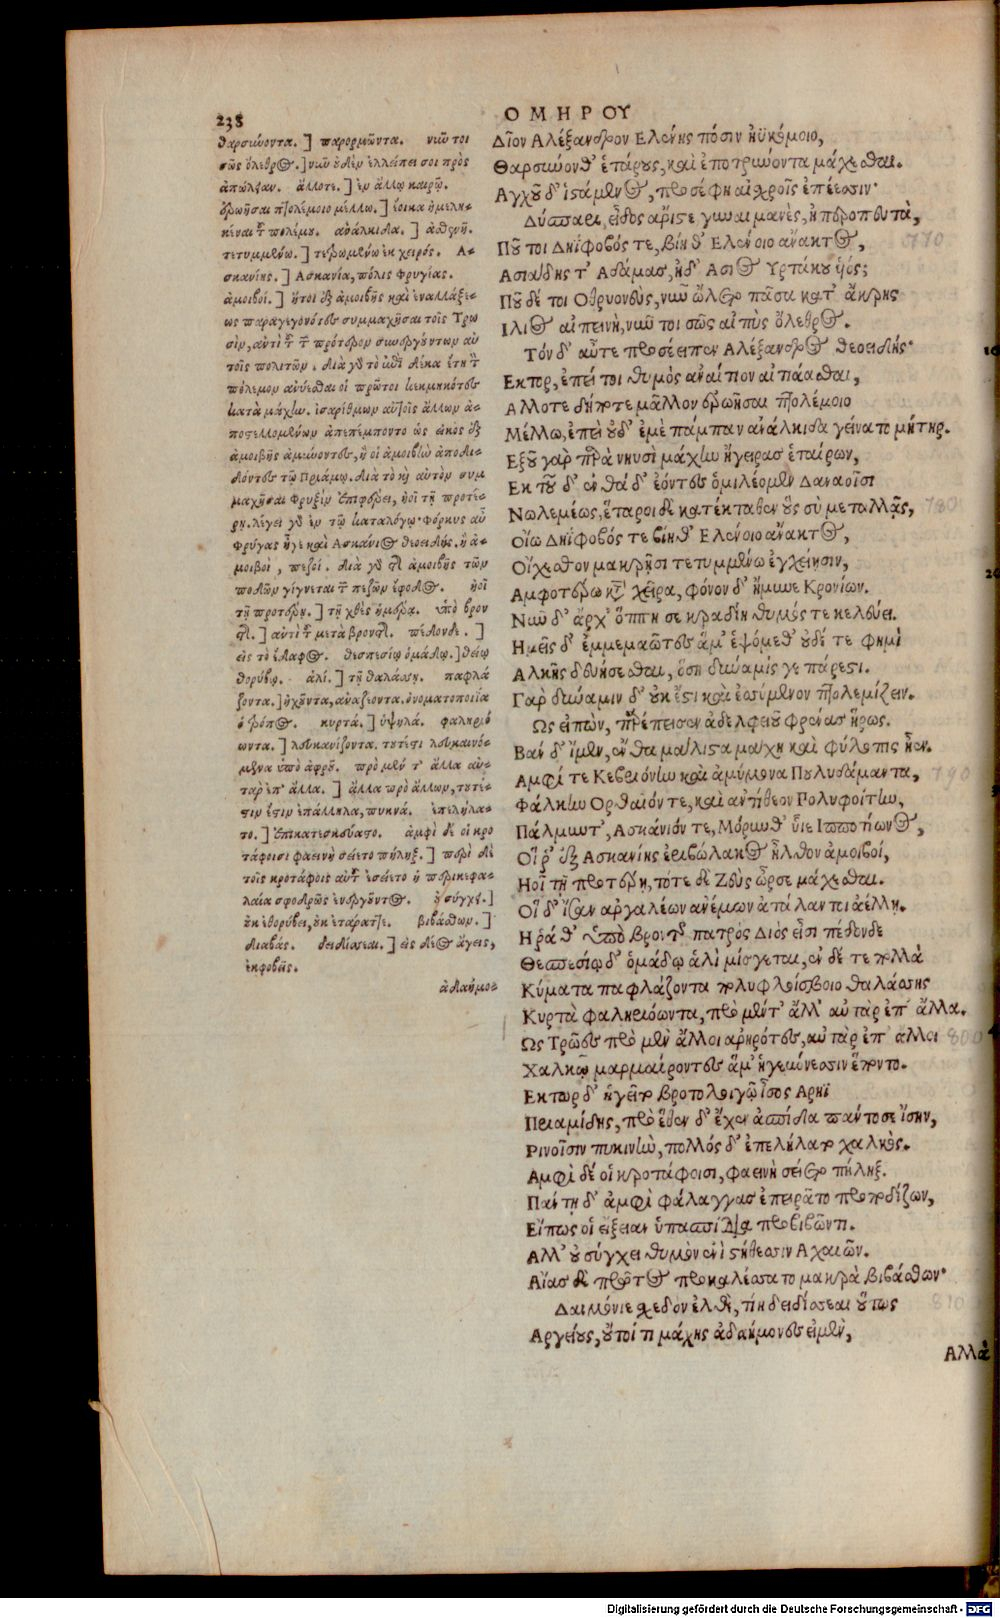 238
ΟΜΗΡΟΥ
θαρσύνοντα.] παρορμῶντα. νῦν τοι
σῶς ὄλεθρος.] νῦν οὐδὲν ἐλλείπει σοι πρὸς
ἀπώλειαν. ἄλλοτε.] ἐν ἄλλῳ καιρῷ.
ἐρωῆσαι πολέμοιο μέλλω.] ἔοικα ἠμελη-
κέναι τοῦ πολέμου. ἀνάλκιδα.] ἀσθενῆ.
τετυμμένω.] τετρωμένω ἐκ χειρός. Α-
σκανίης.] Ἀσκανία, πόλις Φρυγίας.
ἀμοιβοί.] ἤτοι ἐξ ἀμοιβῆς καὶ ἐναλλάξε-
ως παραγεγονότες συμμαχῆσαι τοῖς Τρω
σὶν, ἀντὶ τοῦ τῶν πρότερον συνεργούντων αὐ
τοῖς πολιτῶν. διὰ γὰρ τὸ ἐπὶ δέκα ἔτη τὸν
πόλεμον ἀνύεσθαι οἱ πρῶτοι κεκμηκότες
κατὰ μάχην. ἰσαρίθμων αὐτοῖς ἄλλων ἀ-
ποστελλομένων ἀπεπέμποντο ὡς εἰκὸς ἐξ
ἀμοιβῆς ἀμείνοντες, ἢ οἱ ἀμοιβὴν ἀποδι-
δόντες τῷ Πριάμῳ. διὰ τὸ καὶ αὐτὸν συμ
μαχῆσαι Φρυξὶν ἐπιφέρει, ἠοῖ τῇ προτέ-
ρῃ. λέγει γὰρ ἐν τῷ καταλόγῳ· Φόρκυς αὖ
Φρύγας ἦγε καὶ Ἀσκάνιος θεοειδής. ἢ ἀ-
μοιβοὶ, πεζοί. διὰ γὰρ τῆς ἀμοιβῆς τῶν
ποδῶν γίγνεται τῶν πεζῶν ἔφοδος. ἠοῖ
τῇ προτέρῃ.] τῇ χθὲς ἡμέρᾳ. ὑπὸ βρον
τῆς.] ἀντὶ τοῦ μετὰ βροντῆς. πέδονδε.]
εἰς τὸ ἔδαφος. θεσπεσίῳ ὁμάδῳ.] θείῳ
θορύβῳ. ἁλί.] τῇ θαλάσσῃ. παφλά
ζοντα.] ἠχοῦντα, ἀναζέοντα. ὀνοματοποιΐα
ὁ τρόπος. κυρτά.] ὑψηλά. φαληριό
ωντα.] λευκανίζοντα. τουτέστι λευκαινό-
μενα ὑπὸ ἀφροῦ. πρὸ μέν τ' ἄλλα αὐ-
τὰρ ἐπ' ἄλλα.] ἄλλα πρὸ ἄλλων, τουτέ-
στιν ἔστιν ἐπάλληλα, πυκνά. ἐπελήλα-
το.] ἐπικατεσκεύαστο. ἀμφὶ δέ οἱ κρο
τάφοισι φαεινὴ σείετο πήληξ.] περὶ δὲ
τοῖς κροτάφοις αὐτοῦ ἐσείετο ἡ περικεφα-
λαία σφοδρῶς ἐνεργοῦντος. οὐ σύγχει.]
οὐκ ἐθορύβει, οὐκ ἐτάραττε. βιβάσθων.]
διαβάς. δειδίσσεαι.] εἰς δέος ἄγεις,
ἐκφοβεῖς.
ἀδαήμο-
Δῖον Αλέξανδρον Ελένης πόσιν ἠϋκόμοιο,
Θαρσύνονθ' ἑτάρους, καὶ ἐποτρύνοντα μάχεσθαι.
Αγχοῦ δ' ἱστάμενος, προσέφη αἰσχροῖς ἐπέεσσιν·
Δύσπαρι, εἶδος ἄριστε γυναιμανὲς, ἠπεροπευτὰ,
Ποῦ τοι Δηΐφοβός τε, βίη θ' Ελένοιο ἄνακτος, 770
Ασιάδης τ' Αδάμας, ἠδ' Ασιος Υρτάκου υἱός;
Ποῦ δέ τοι Οθρυονεὺς, νῦν ὤλετο πᾶσα κατ' ἄκρης
Ιλιος αἰπεινὴ, νῦν τοι σῶς αἰπὺς ὄλεθρος.
Τόνδ' αὖτε προσέειπεν Αλέξανδρος θεοειδής·
Εκτορ, ἐπεί τοι θυμὸς ἀναίτιον αἰτιάασθαι,
Αλλοτε δήποτε μᾶλλον ἐρωῆσαι πολέμοιο
Μέλλω, ἐπεὶ οὐδ' ἐμὲ πάμπαν ἀνάλκιδα γείνατο μήτηρ.
Εξοῦ γὰρ παρὰ νηυσὶ μάχην ἤγειρας ἑταίρων,
Εκ τοῦ δ' ἐνθάδ' ἐόντες ὁμιλέομεν Δαναοῖσι
Νωλεμέως, ἕταροι δὲ κατέκταθεν οὓς σὺ μεταλλᾷς, 780
Οἴω Δηΐφοβός τε βίη θ' Ελένοιο ἄνακτος,
Οἴχεσθον μακρῇσι τετυμμένω ἐγχείῃσιν,
Αμφοτέρω κατὰ χεῖρα, φόνον δ' ἤμυνε Κρονίων.
Νῦν δ' ἄρχ' ὅππη σε κραδίη θυμός τε κελεύει.
Ημεῖς δ' ἐμμεμαῶτες ἅμ' ἑψόμεθ' οὐδέ τέ φημὶ
Αλκῆς δευήσεσθαι, ὅση δύναμίς γε πάρεστι.
Γὰρ δύναμιν δ' οὐκ ἔστι καὶ ἐσσύμενον πολεμίζειν.
Ως εἰπὼν, παρέπεισεν ἀδελφειοῦ φρένας ἥρως.
Βαν δ' ἴμεν, ἔνθα μάλιστα μάχη καὶ φύλοπις ἦεν.
Αμφί τε Κεβριόνην καὶ ἀμύμονα Πουλυδάμαντα, 790
Φάλκην Ορθαῖόν τε, καὶ ἀντίθεον Πολυφοίτην,
Πάλμυν τ', Ασκάνιόν τε, Μόρυν θ' υἷε Ιπποτίωνος,
Οἵ ῥ' ἐξ Ασκανίης ἐριβώλακος ἦλθον ἀμοιβοί,
Ηοῖ τῇ προτέρῃ, τότε δὲ Ζεὺς ὦρσε μάχεσθαι.
Οἱ δ' ἴσαν ἀργαλέων ἀνέμων ἀτάλαντοι ἀέλλῃ.
Η ῥά θ' ὑπὸ βροντῆς πατρὸς Διὸς εἶσι πέδονδε
Θεσπεσίῳ δ' ὁμάδῳ ἁλὶ μίσγεται, ἐν δέ τε πολλὰ
Κύματα παφλάζοντα πολυφλοίσβοιο θαλάσσης
Κυρτὰ φαληριόωντα, πρὸ μέν τ' ἄλλ' αὐτὰρ ἐπ' ἄλλα.
Ως Τρῶες πρὸ μὲν ἄλλοι ἀρηρότες, αὐτὰρ ἐπ' ἄλλοι 800
Χαλκῷ μαρμαίροντες ἅμ' ἡγεμόνεσσιν ἕποντο.
Εκτωρ δ' ἡγεῖτο βροτολοιγῷ ἶσος Αρηϊ
Πριαμίδης, πρὸ ἕθεν δ' ἔχεν ἀσπίδα πάντοσε ἴσην,
Ρινοῖσιν πυκινὴν, πολλὸς δ' ἐπελήλατο χαλκός.
Αμφὶ δέ οἱ κροτάφοισι, φαεινὴ σείετο πήληξ.
Πάντῃ δ' ἀμφὶ φάλαγγας ἐπειρᾶτο προποδίζων,
Εἴπως οἱ εἴξειαν ὑπασπίδια προβιβῶντι.
Αλλ' οὐ σύγχει θυμὸν ἐνὶ στήθεσσιν Αχαιῶν.
Αἴας δὲ πρῶτος προκαλέσσατο μακρὰ βιβάσθων·
Δαιμόνιε σχεδὸν ἐλθὲ, τίη δειδίσσεαι οὕτως 810
Αργείους, οὔτοί τι μάχης ἀδαήμονες εἰμὲν,
Αλλὰ
Digitalisierung gefördert durch die Deutsche Forschungsgemeinschaft - DFG